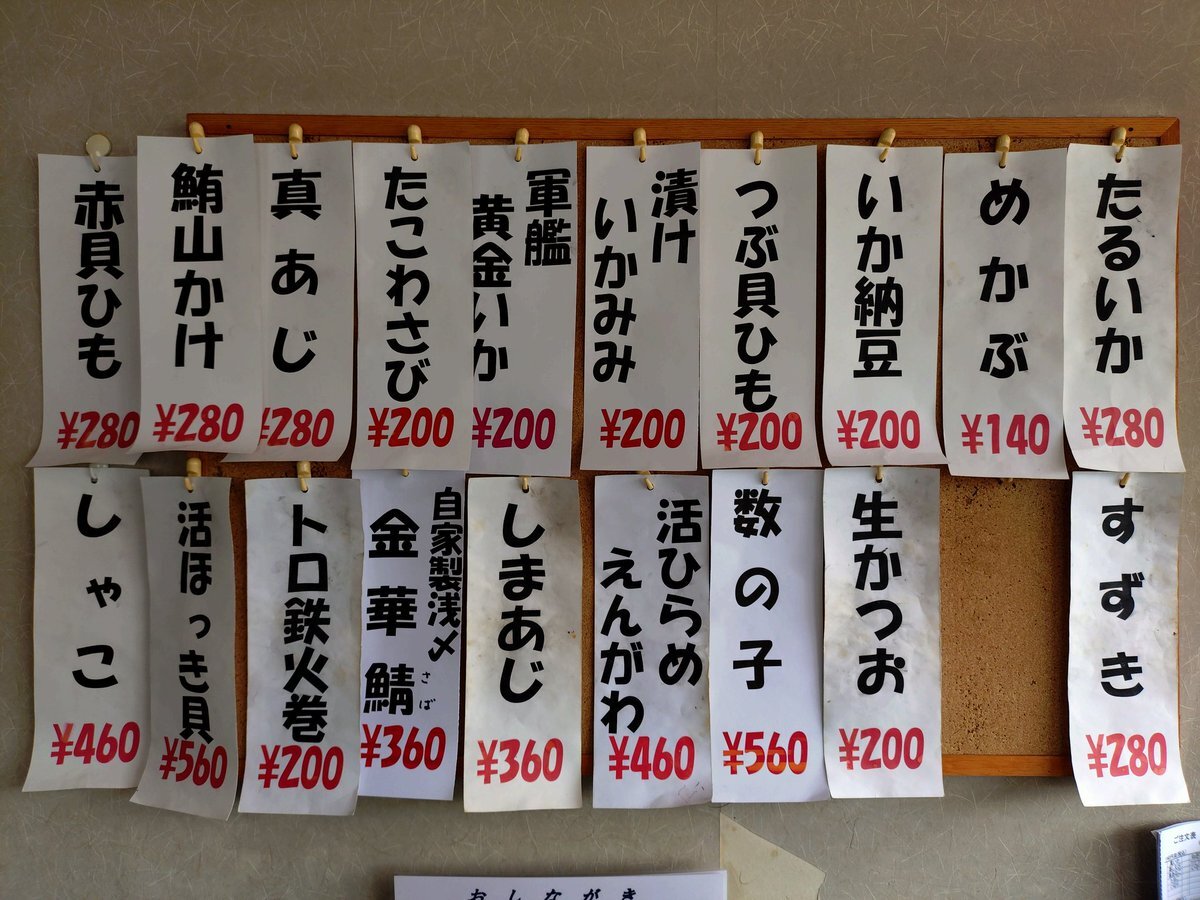 たるいか
¥280
めかぶ
¥140
いか納豆
¥200
つぶ貝ひも
¥200
漬け
いかみみ
¥200
軍艦
黄金いか
¥200
たこわさび
¥200
真あじ
¥280
鮪山かけ
¥280
赤貝ひも
¥280
すずき
¥280
生かつお
¥200
数の子
¥560
活ひらめ
えんがわ
¥460
しまあじ
¥360
自家製浅〆
金華鯖
さば
¥360
トロ鉄火巻
¥200
活ほっき貝
¥560
しゃこ
¥460
おしながき
ご注文表